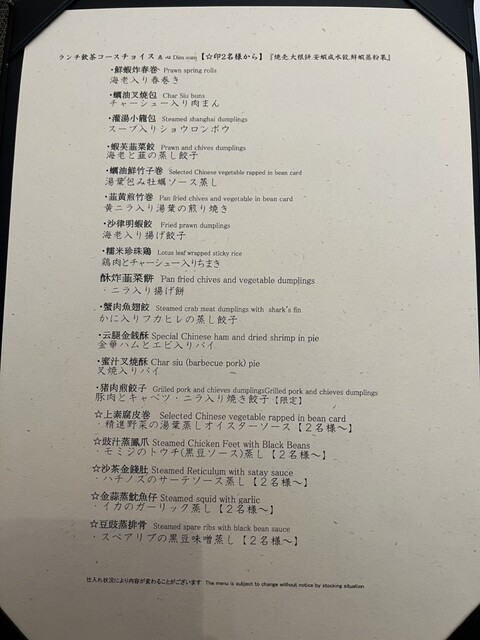 ランチ飲茶コースチョイス 点心 Dim sum【☆印2名様から】『焼売,大根餅,安蝦咸水餃,鮮蝦蒸粉菓』
・鮮蝦炸春巻 Prawn spring rolls
海老入り春巻き
・蠣油叉焼包 Char Siu buns
チャーシュー入り肉まん
・灌湯小龍包 Steamed shanghai dumplings
スープ入りショウロンポウ
・蝦芙韮菜餃 Prawn and chives dumplings
海老と韮の蒸し餃子
・蠣油鮮竹子巻 Selected Chinese vegetable rapped in bean card
湯葉包み牡蠣ソース蒸し
・韮黄煎竹巻 Pan fried chives and vegetable in bean card
黄ニラ入り湯葉の煎り焼き
・沙律明蝦餃 Fried prawn dumplings
海老入り揚げ餃子
・糯米珍珠鶏 Lotus leaf wrapped sticky rice
鶏肉とチャーシュー入りちまき
酥炸韮菜餅 Pan fried chives and vegetable dumplings
・ニラ入り揚げ餅
・蟹肉魚翅餃 Steamed crab meat dumplings with shark's fin
かに入りフカヒレの蒸し餃子
・云腿金銭酥 Special Chinese ham and dried shrimp in pie
金華ハムとエビ入りパイ
・蜜汁叉焼酥 Char siu (barbecue pork) pie
叉焼入りパイ
・猪肉煎餃子 Grilled pork and chieves dumplingsGrilled pork and chieves dumplings
豚肉とキャベツ・ニラ入り焼き餃子【限定】
☆上素腐皮巻 Selected Chinese vegetable rapped in bean card
・精進野菜の湯葉蒸しオイスターソース【２名様～】
☆豉汁蒸鳳爪 Steamed Chicken Feet with Black Beans
・モミジのトウチ(黒豆ソース)蒸し【２名様～】
☆沙茶金錢肚 Steamed Reticulum with satay sauce
・ハチノスのサーテソース蒸し【２名様～】
☆金蒜蒸魷魚仔 Steamed squid with garlic
・イカのガーリック蒸し【２名様～】
☆豆豉蒸排骨 Steamed spare ribs with black bean sauce
・スペアリブの黒豆味噌蒸し【２名様～】
仕入れ状況により内容が変わることがございます The menu is subject to change without notice by stocking situation